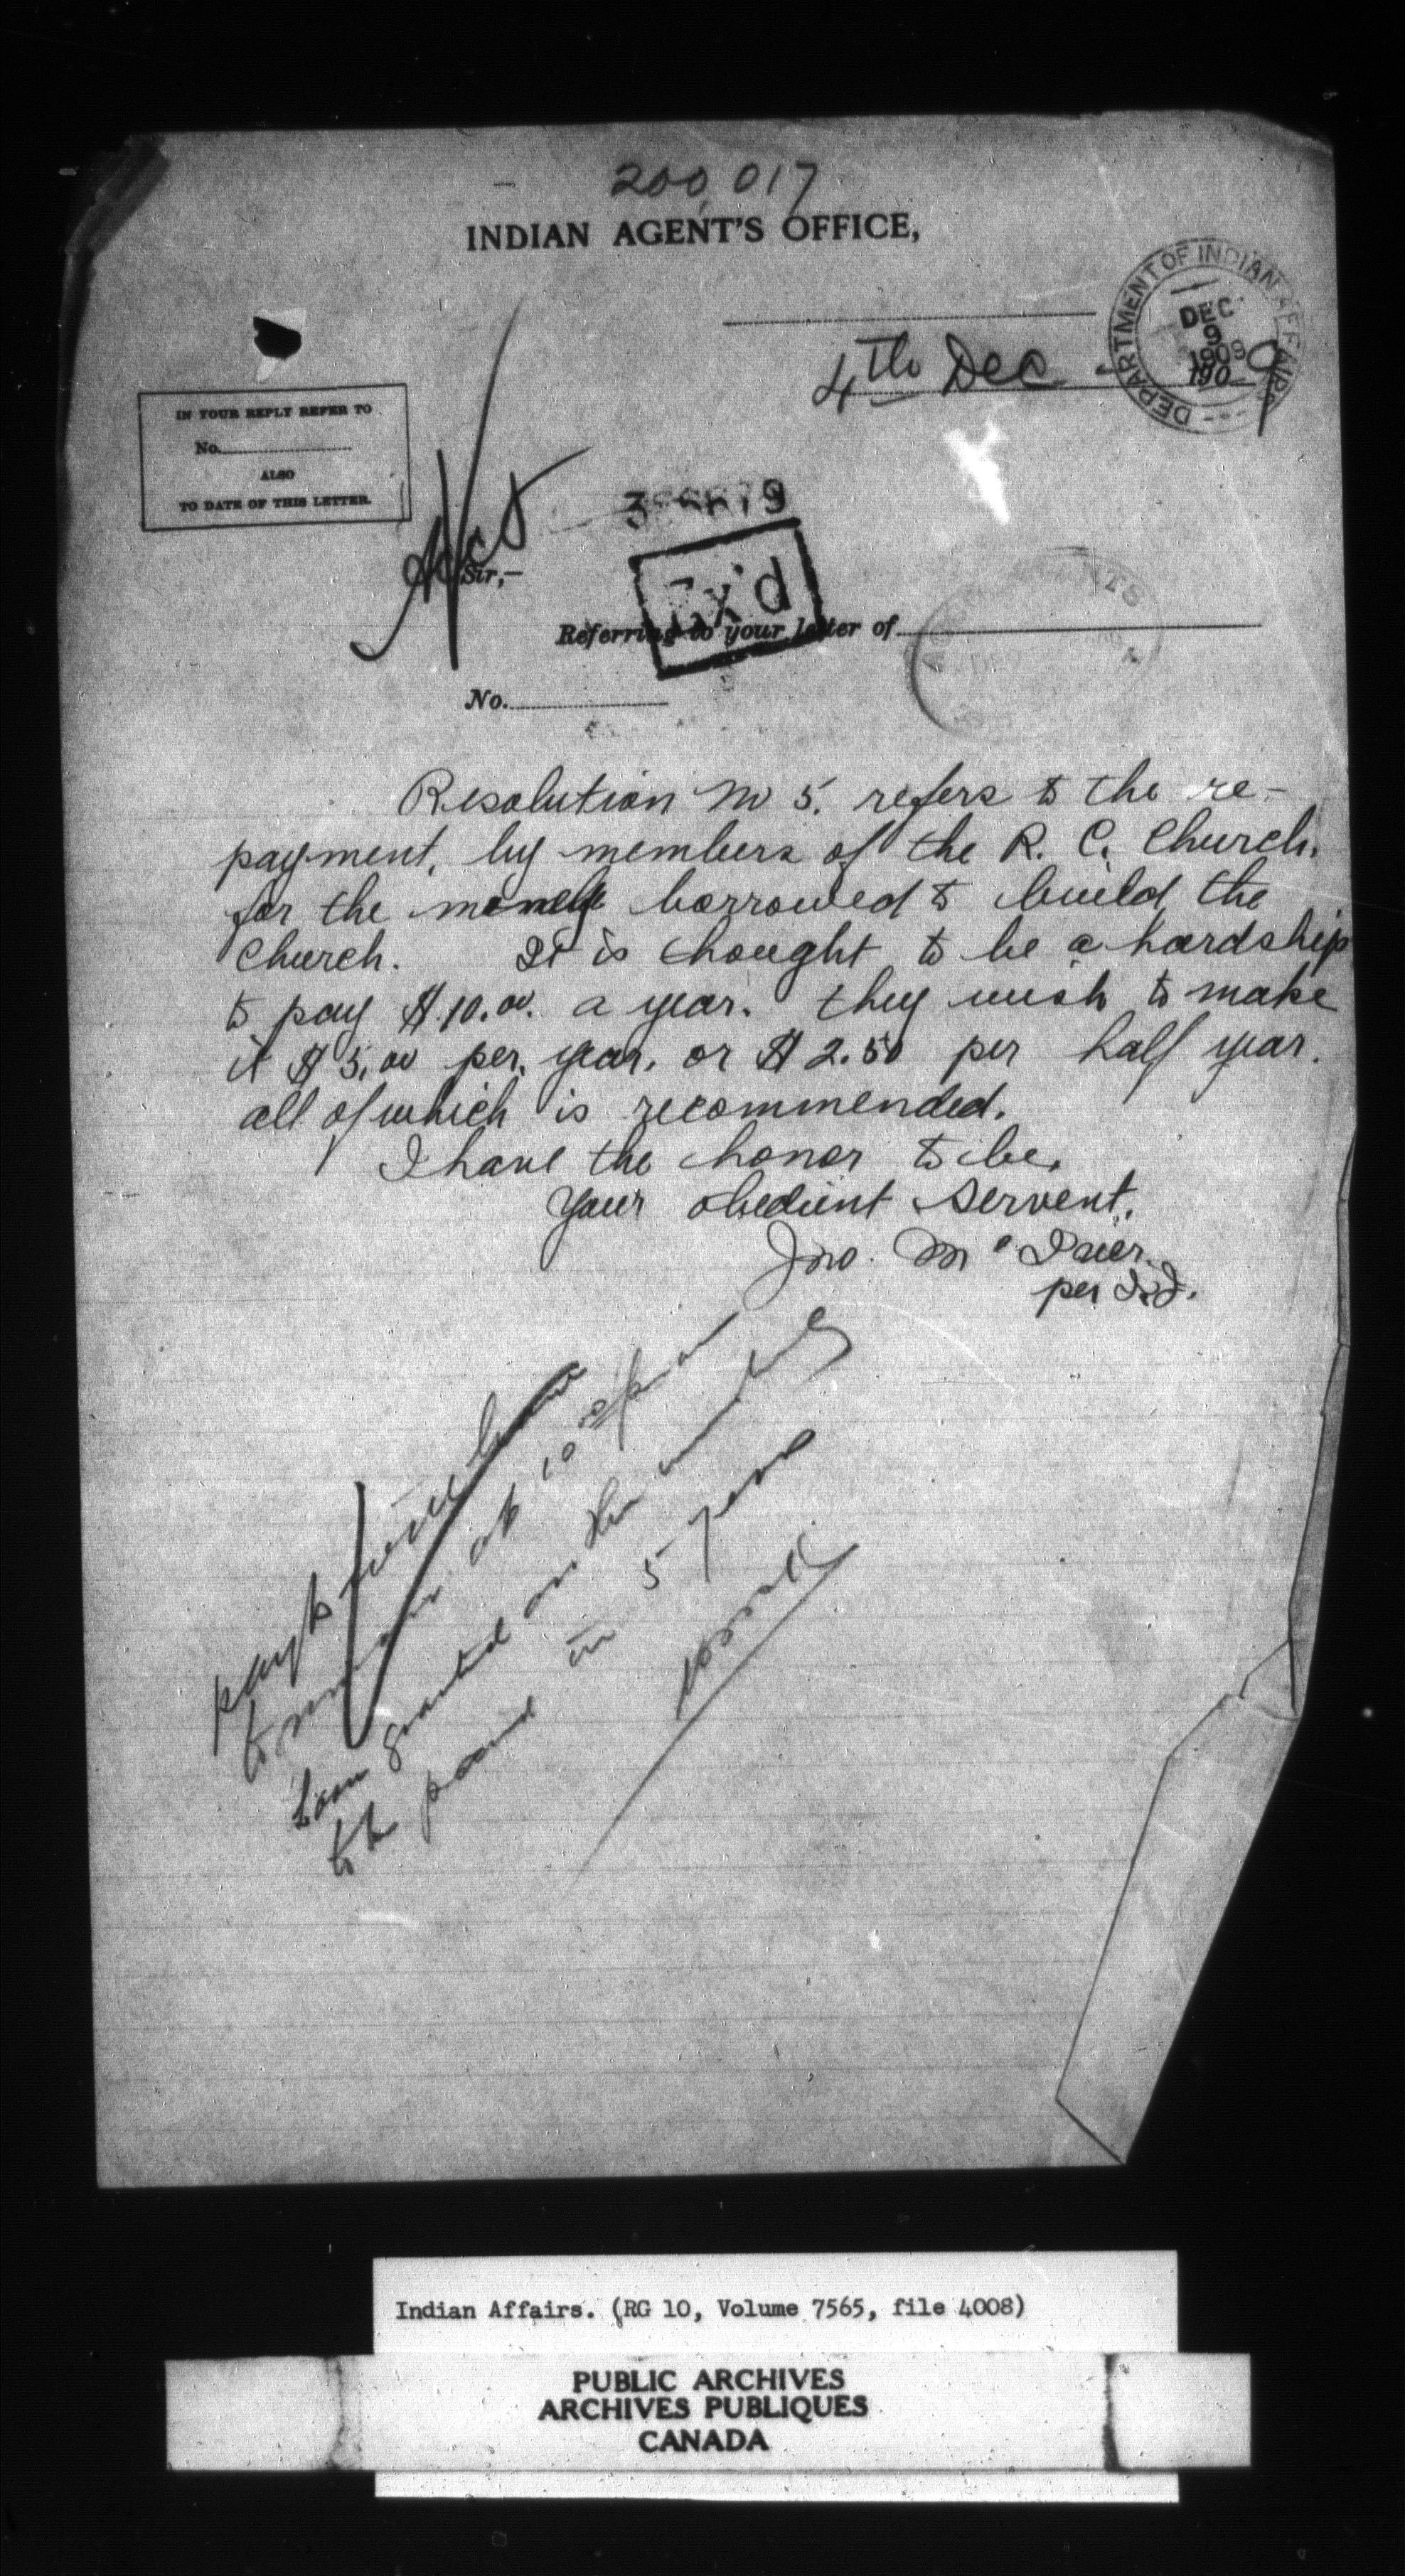 200,017
INDIAN AGENT'S OFFICE,
DEPARTMENT OF INDIAN AFFAIRS
DEC
9
1909
4th Dec. 1909
IN YOUR REPLY REFER TO
No.
ALSO
TO DATE OF THIS LETTER.
Sir,—
Referring to your letter of
No.
Resolution No 5. refers to the re-
payment, by members of the R. C. Church,
for the money borrowed to build the
Church. It is thought to be a hardship
to pay $10.00. a year. they wish to make
it $5.00 per, year, or $2.50 per half year.
all of which is recommended.
I have the honor to be,
Your obedient Servent,
Jno. Mc
per
at 10
Loan granted on the
to be in 5 years
Indian Affairs. (RG 10, Volume 7565, file 4008)
PUBLIC ARCHIVES
ARCHIVES PUBLIQUES
CANADA